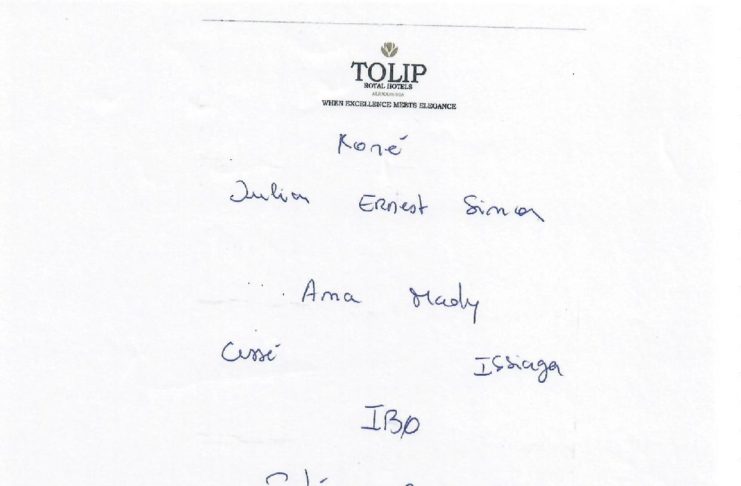 TOLIP
ROYAL HOTELS
ALEXANDRIA
WHEN EXCELLENCE MEETS ELEGANCE
Koné
Julian Ernest Simon
Ama Mady
Cissé Issiaga
IBO